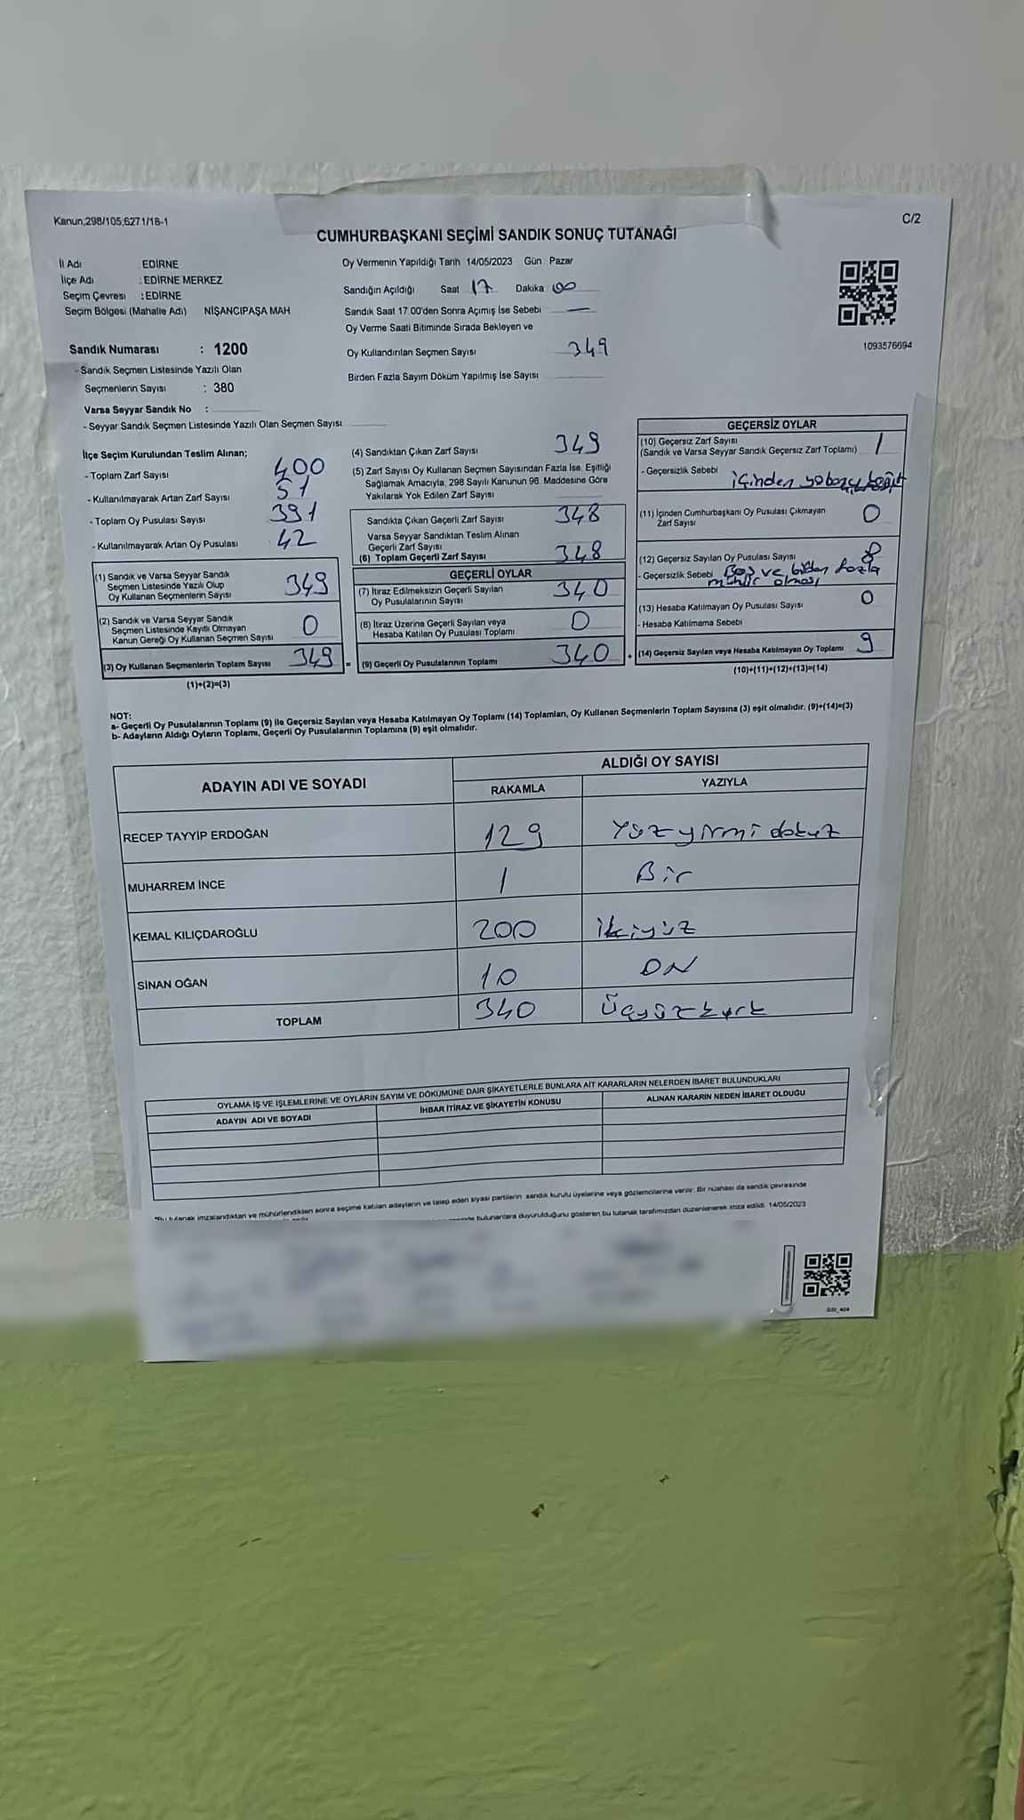 Kanun,298/105;6271/18-1
C/2
CUMHURBAŞKANI SEÇİMİ SANDIK SONUÇ TUTANAĞI
İl Adı EDİRNE
İlçe Adı : EDİRNE MERKEZ
Seçim Çevresi : EDİRNE
Seçim Bölgesi (Mahalle Adı) NİŞANCIPAŞA MAH
Oy Vermenin Yapıldığı Tarih 14/05/2023 Gün Pazar
Sandığın Açıldığı Saat 17 Dakika 00
Sandık Saat 17.00'den Sonra Açılmış İse Sebebi —
Oy Verme Saati Bitiminde Sırada Bekleyen ve
Oy Kullandırılan Seçmen Sayısı 349
Birden Fazla Sayım Döküm Yapılmış İse Sayısı
1093576694
Sandık Numarası : 1200
- Sandık Seçmen Listesinde Yazılı Olan
Seçmenlerin Sayısı : 380
Varsa Seyyar Sandık No :
- Seyyar Sandık Seçmen Listesinde Yazılı Olan Seçmen Sayısı
İlçe Seçim Kurulundan Teslim Alınan;
- Toplam Zarf Sayısı 400
- Kullanılmayarak Artan Zarf Sayısı 51
- Toplam Oy Pusulası Sayısı 391
- Kullanılmayarak Artan Oy Pusulası 42
(1) Sandık ve Varsa Seyyar Sandık
Seçmen Listesinde Yazılı Olup
Oy Kullanan Seçmenlerin Sayısı 349
(2) Sandık ve Varsa Seyyar Sandık
Seçmen Listesinde Kayıtlı Olmayan
Kanun Gereği Oy Kullanan Seçmen Sayısı 0
(3) Oy Kullanan Seçmenlerin Toplam Sayısı 349
(1)+(2)=(3)
(4) Sandıktan Çıkan Zarf Sayısı 349
(5) Zarf Sayısı Oy Kullanan Seçmen Sayısından Fazla İse, Eşitliği
Sağlamak Amacıyla, 298 Sayılı Kanunun 98. Maddesine Göre
Yakılarak Yok Edilen Zarf Sayısı
Sandıkta Çıkan Geçerli Zarf Sayısı 348
Varsa Seyyar Sandıktan Teslim Alınan
Geçerli Zarf Sayısı
(6) Toplam Geçerli Zarf Sayısı 348
GEÇERLİ OYLAR
(7) İtiraz Edilmeksizin Geçerli Sayılan
Oy Pusulalarının Sayısı 340
(8) İtiraz Üzerine Geçerli Sayılan veya
Hesaba Katılan Oy Pusulası Toplamı 0
(9) Geçerli Oy Pusulalarının Toplamı 340
GEÇERSİZ OYLAR
(10) Geçersiz Zarf Sayısı
(Sandık ve Varsa Seyyar Sandık Geçersiz Zarf Toplamı) 1
- Geçersizlik Sebebi içinden yabancı kağıt
(11) İçinden Cumhurbaşkanı Oy Pusulası Çıkmayan
Zarf Sayısı 0
(12) Geçersiz Sayılan Oy Pusulası Sayısı 8
- Geçersizlik Sebebi Boş ve birden fazla
mühür olması
(13) Hesaba Katılmayan Oy Pusulası Sayısı 0
- Hesaba Katılmama Sebebi
(14) Geçersiz Sayılan veya Hesaba Katılmayan Oy Toplamı 9
(10)+(11)+(12)+(13)=(14)
NOT:
a- Geçerli Oy Pusulalarının Toplamı (9) ile Geçersiz Sayılan veya Hesaba Katılmayan Oy Toplamı (14) Toplamları, Oy Kullanan Seçmenlerin Toplam Sayısına (3) eşit olmalıdır. (9)+(14)=(3)
b- Adayların Aldığı Oyların Toplamı, Geçerli Oy Pusulalarının Toplamına (9) eşit olmalıdır.
ADAYIN ADI VE SOYADI
ALDIĞI OY SAYISI
RAKAMLA YAZIYLA
RECEP TAYYİP ERDOĞAN 129 Yüzyirmidokuz
MUHARREM İNCE 1 Bir
KEMAL KILIÇDAROĞLU 200 ikiyüz
SİNAN OĞAN 10 ON
TOPLAM 340 Üçyüzkırk
OYLAMA İŞ VE İŞLEMLERİNE VE OYLARIN SAYIM VE DÖKÜMÜNE DAİR ŞİKAYETLERLE BUNLARA AİT KARARLARIN NELERDEN İBARET BULUNDUKLARI
ADAYIN ADI VE SOYADI İHBAR İTİRAZ VE ŞİKAYETİN KONUSU ALINAN KARARIN NEDEN İBARET OLDUĞU
imzalandıktan ve mühürlendikten sonra seçime katılan adayların ve talep eden siyasi partilerin sandık kurulu üyelerine veya gözlemcilerine verilir. Bir nüshası da sandık çevresinde
bulunanlara duyurulduğunu gösteren bu tutanak tarafımızdan düzenlenerek imza edildi. 14/05/2023